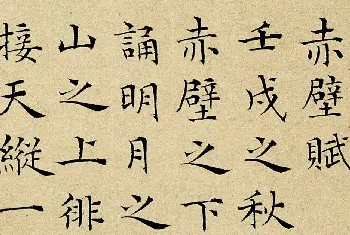 赤壁賦
壬戌之秋
赤壁之下
誦明月之
山之上徘
接天縱一